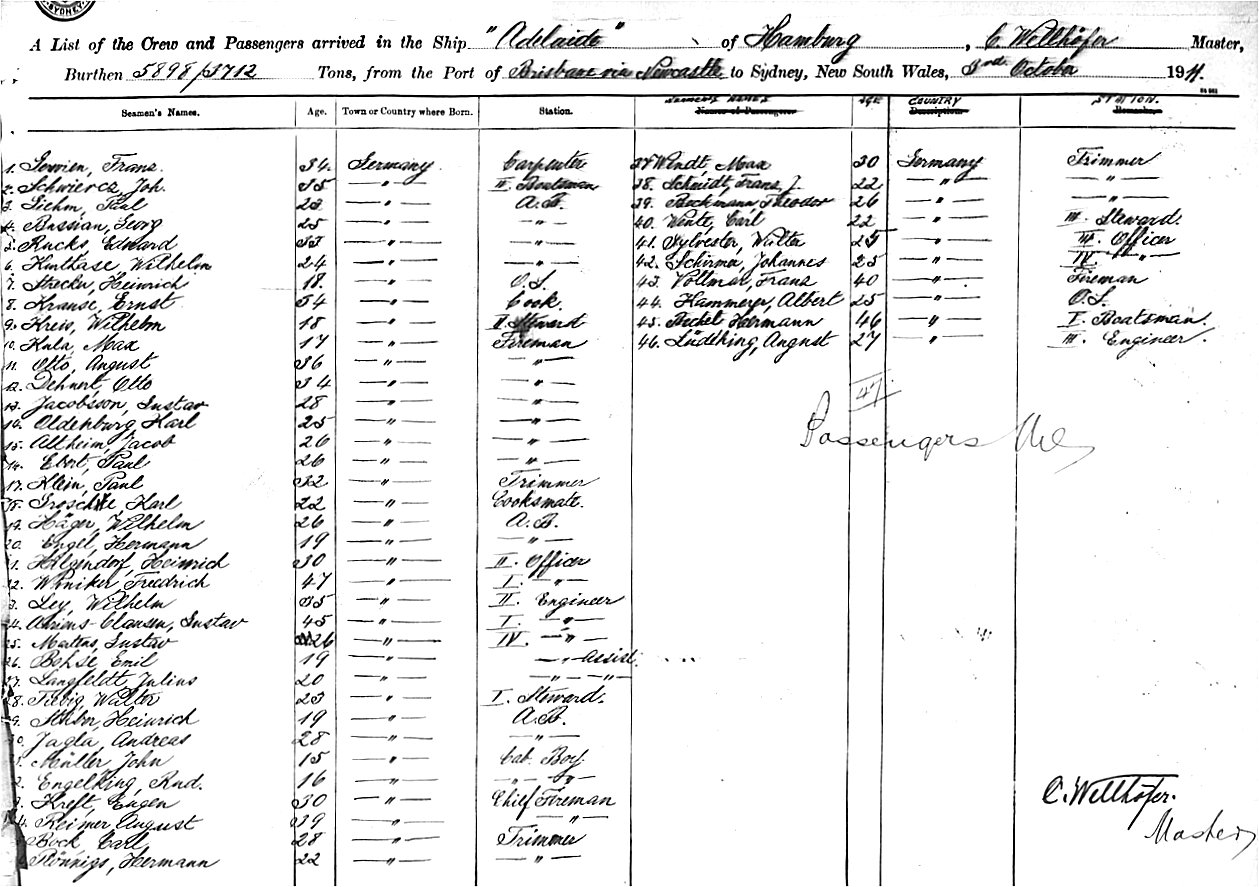 SYDNEY
A List of the Crew and Passengers arrived in the Ship "Adelaide" of Hamburg, C. Wellhöfer Master,
Burthen 5898/3712 Tons, from the Port of Brisbane via Newcastle to Sydney, New South Wales, 3rd October 1911.
Seamen's Names. Age. Town or Country where Born. Station. Seamen's Names AGE COUNTRY STATION.
Names of Passengers Description Remarks
1. Frans 34 Germany Carpenter 37 Wendt, Max 30 Germany Trimmer
2. Schwiercz, Joh. 35 — " — II. Boatsman 38. Schmidt, Frans J. 22 — " — — " —
3. Paul 23 — " — A.B. 39. Beckmann Theodor 26 — " — — " —
4. Bussian, Georg 25 — " — — " — 40. Wente, Carl 22 — " — III. Steward.
5. Kucks, Edward 33 — " — — " — 41. Sylvester, Walter 25 — " — III. Officer
6. Wilhelm 24 — " — — " — 42. Schirmer, Johannes 25 — " — IV — " —
7. Heinrich 18. — " — O.S. 43. Vollmar, Frans 40 — " — Fireman
8. Krause, Ernst 54 — " — Cook. 44. Hammerer, Albert 25 — " — O.S.
9. Kreis, Wilhelm 18 — " — II. Steward 45. Bechel Hermann 46 — " — I. Boatsman.
10. Kula, Max 17 — " — Fireman 46. Lüdtking, August 27 — " — III. Engineer.
11. Otto, August 36 — " — — " —
12. Dehnert, Otto 34 — " — — " —
47
13. Jacobsson, Gustav 28 — " — — " —
Passengers
14. Oldenburg, Karl 25 — " — — " —
15. Altheim, Jacob 26 — " — — " —
16. Ebert, Paul 26 — " — — " —
17. Klein, Paul 32 — " — Trimmer
18. Karl 22 — " — Cooksmate.
19. Häger, Wilhelm 26 — " — A.B.
20. Engel, Hermann 19 — " — — " —
1. Hilgendorf, Heinrich 30 — " — II. Officer
22. Winiker, Friedrich 47 — " — I. — " —
3. Ley, Wilhelm 35 — " — II. Engineer
24. Ahrens-Clausen, Gustav 45 — " — I. — " —
25. Gustav 26 — " — IV. — " —
26. Emil 19 — " — — " — Assist.
27. Langfeldt, Julius 20 — " — — " — " —
28. Walter 23 — " — I. Steward.
9. Heinrich 19 — " — A.B.
30. Jagla, Andreas 28 — " — — " —
Müller, John 15 — " — Cab. Boy
2. Engelking, Rud. 16 — " — — " — " —
3. Kreft, Eugen 30 — " — Chief Fireman
C. Wellhöfer.
4. Reimer, August 39 — " — — " —
Master
Bock, Carl 28 — " — Trimmer
Rönnigs, Hermann 22 — " — — " —